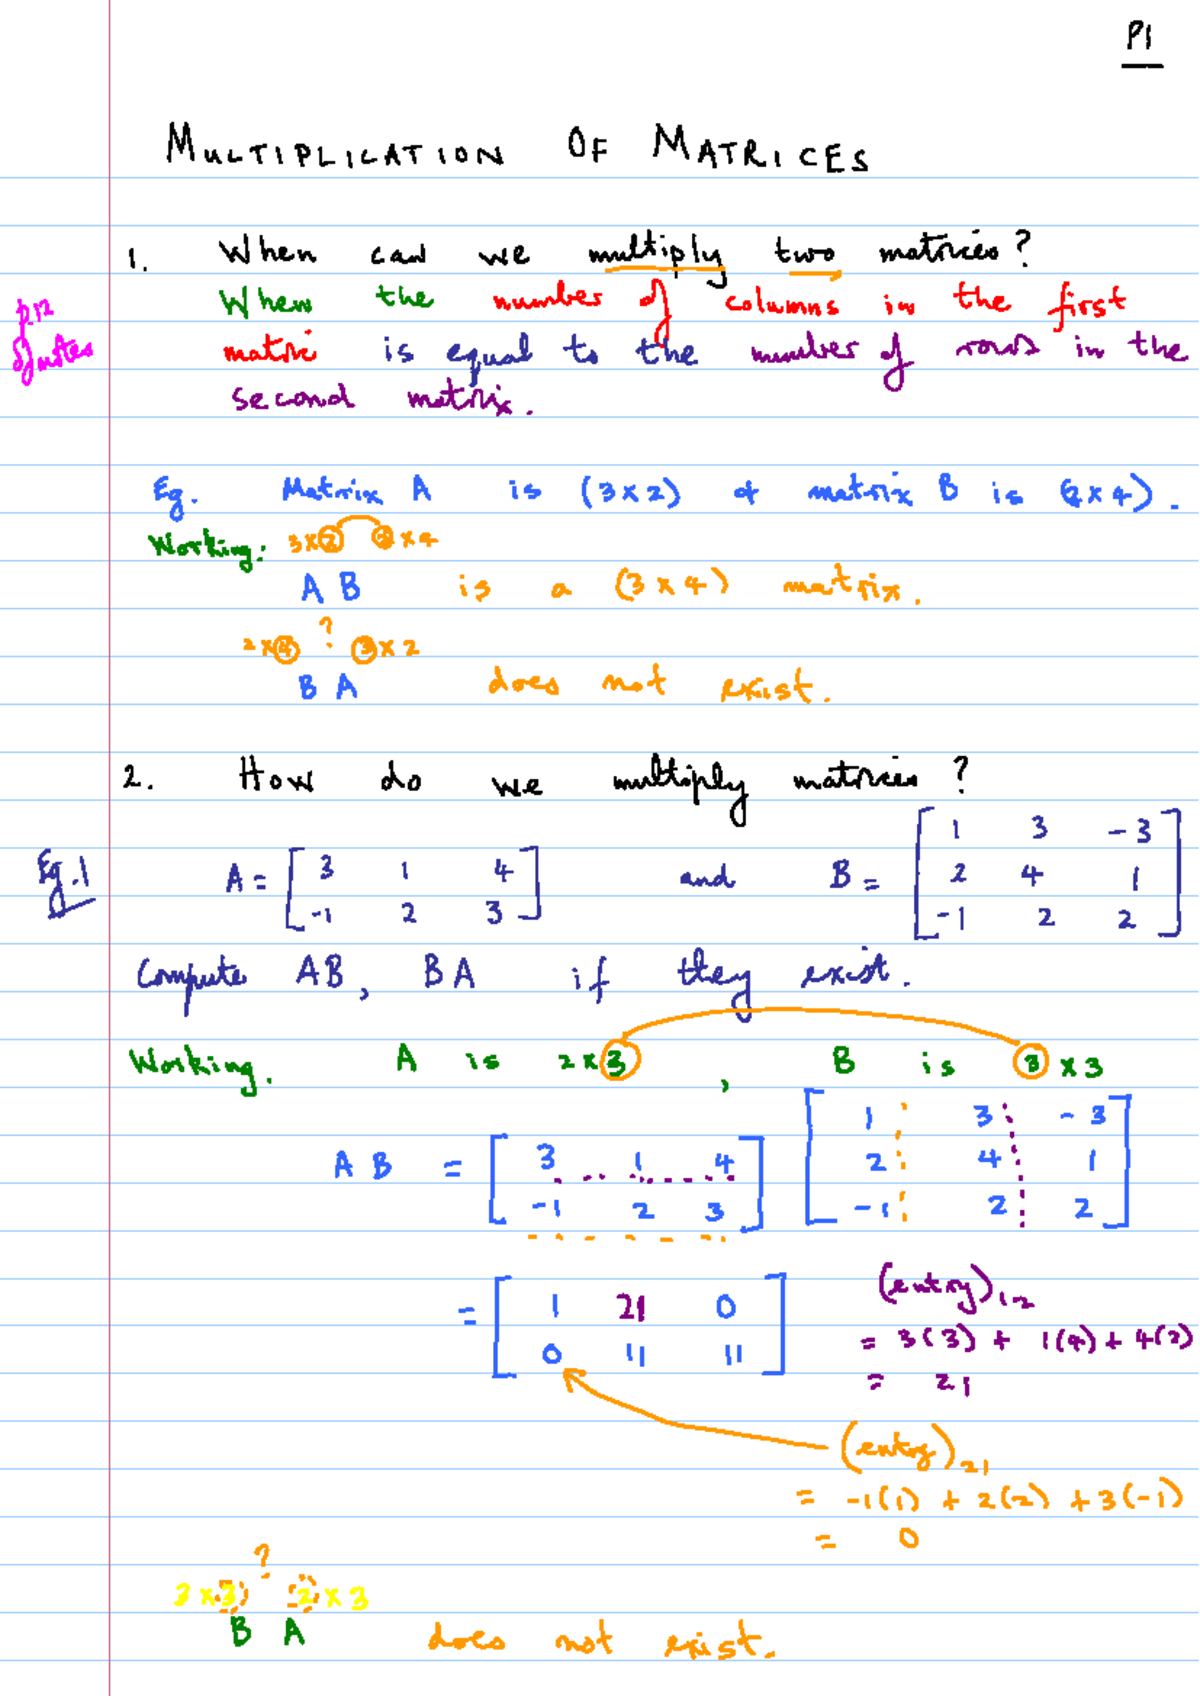 P1
MULTIPLICATION OF MATRICES
1. When can we multiply two matrices?
p12 of notes
When the number of columns in the first
matrix is equal to the number of rows in the
second matrix.
Eg. Matrix A is (3×2) & matrix B is (2×4).
Working: 3×2 2×4
A B is a (3×4) matrix.
?
2×4 3×2
B A does not exist.
2. How do we multiply matrices?
Eg.1 A = [3 1 4; -1 2 3] and B = [1 3 -3; 2 4 1; -1 2 2]
Compute AB, BA if they exist.
Working. A is 2×3, B is 3×3
A B = [3 1 4; -1 2 3] [1 3 -3; 2 4 1; -1 2 2]
= [1 21 0; 0 11 11]
(entry)12
= 3(3) + 1(4) + 4(2)
= 21
(entry)21
= -1(1) + 2(2) + 3(-1)
= 0
?
3×3 2×3
B A does not exist.